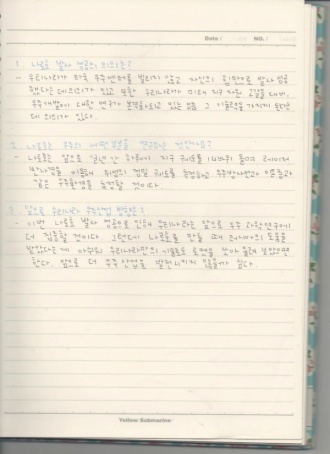 Date / NO. /
1. 나로호 발사 성공의 의의는?
- 우리나라가 타국 우주센터를 빌리지 않고 자신의 힘만으로 발사 성공
했다는데 의의가 있고 또한 우리나라가 미래 지구 자원 고갈을 대비,
우주개발에 대한 연구가 본격화되고 있는 요즘 그 기술력을 가지게 된다는
데 의의가 있다.
2. 나로호는 우주의 어떤 부분을 연구하는 것인가요?
- 나로호는 앞으로 일년간 하루에 지구 궤도를 14바퀴 돌며 레이저
반사경을 이용해 위성의 정밀 궤도를 측정하고 우주방사선과 이온층과
같은 우주환경을 관측할 것이다.
3. 앞으로 우리나라 우주산업 방향은?
- 이번 나로호 발사 성공으로 인해 우리나라는 앞으로 우주 과학연구에
더 집중할 것이다. 그런데 나로호를 만들 때 러시아의 도움을
받았다는게 아쉬워 우리나라만의 기술로 로켓을 쏘아 올려 보았으면
한다. 앞으로 더 우주산업을 발전시키지 않을까 싶다.
Yellow Submarine